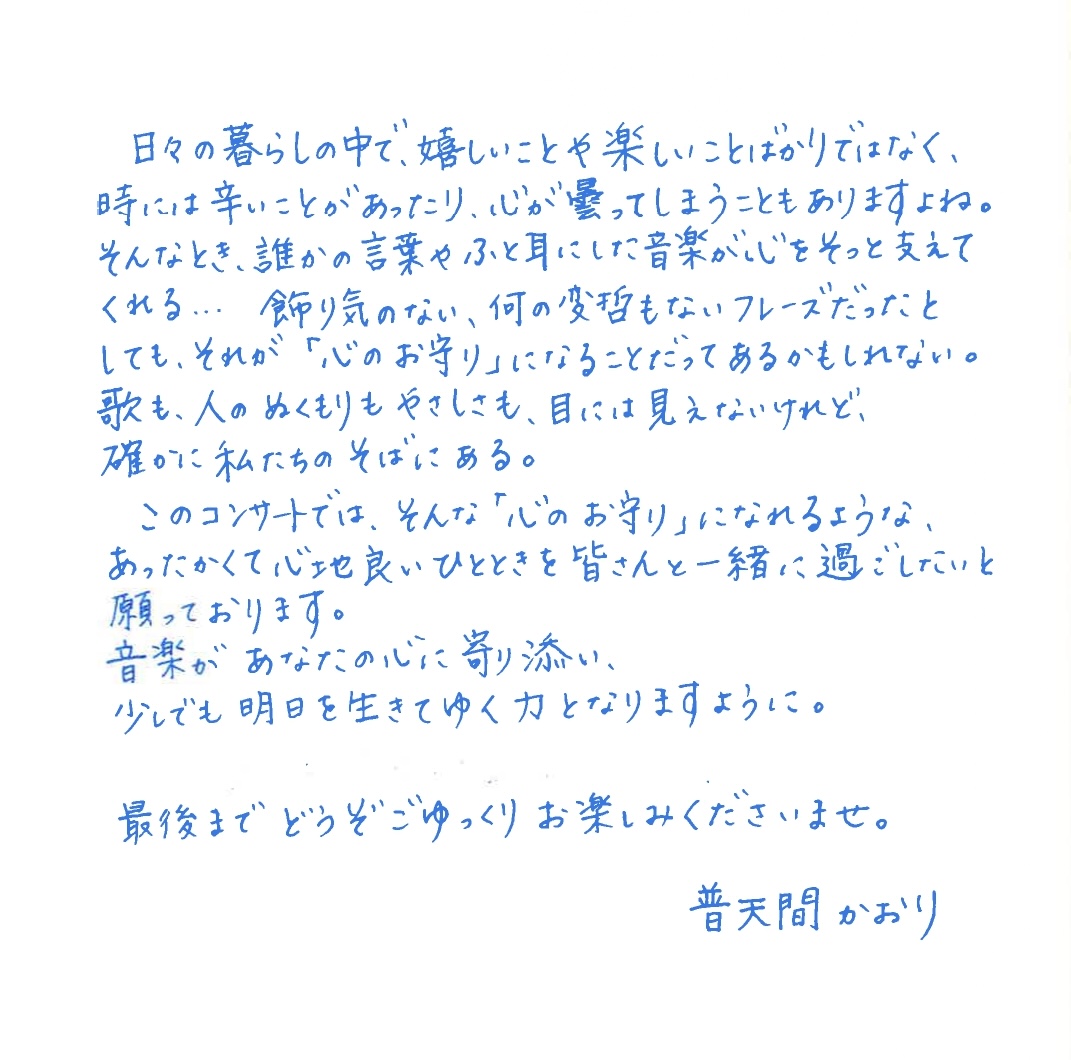 日々の暮らしの中で、嬉しいことや楽しいことばかりではなく、
時には辛いことがあったり、心が曇ってしまうこともありますよね。
そんなとき、誰かの言葉やふと耳にした音楽が心をそっと支えて
くれる… 飾り気のない、何の変哲もないフレーズだったと
しても、それが「心のお守り」になることだってあるかもしれない。
歌も、人のぬくもりもやさしさも、目には見えないけれど、
確かに私たちのそばにある。
このコンサートでは、そんな「心のお守り」になれるような、
あったかくて心地良いひとときを皆さんと一緒に過ごしたいと
願っております。
音楽があなたの心に寄り添い、
少しでも明日を生きてゆく力となりますように。
最後までどうぞごゆっくりお楽しみくださいませ。
普天間かおり